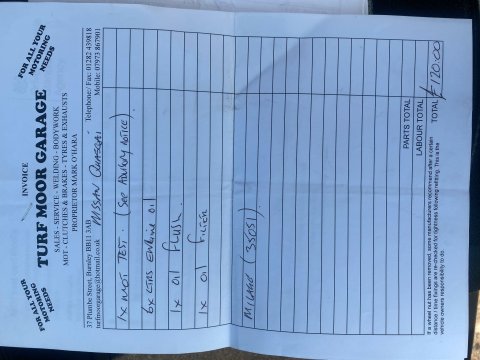 INVOICE
FOR ALL YOUR MOTORING NEEDS
TURF MOOR GARAGE
FOR ALL YOUR MOTORING NEEDS
SALES - SERVICE - WELDING - BODYWORK
MOT - CLUTCHES & BRAKES - TYRES & EXHAUSTS
PROPRIETOR MARK O'HARA
37 Plumbe Street, Burnley BB11 3AB
Telephone/ Fax: 01282 439818
turfmoorgarage@hotmail.co.uk
Mobile: 07973 867901
NISSAN QUASQAI
1x MOT TEST. (SEE ADVISORY NOTICE).
6x LTRS ENGINE OIL
1x OIL FLUSH.
1x OIL FILTER
MILEAGE (35051).
PARTS TOTAL
LABOUR TOTAL
TOTAL £120.00
If a wheel nut has been removed, some manufacturers recommend after a certain
distance / time fixings are re-checked for tightness following refitting. This is the
vehicle owners responsibility to do.